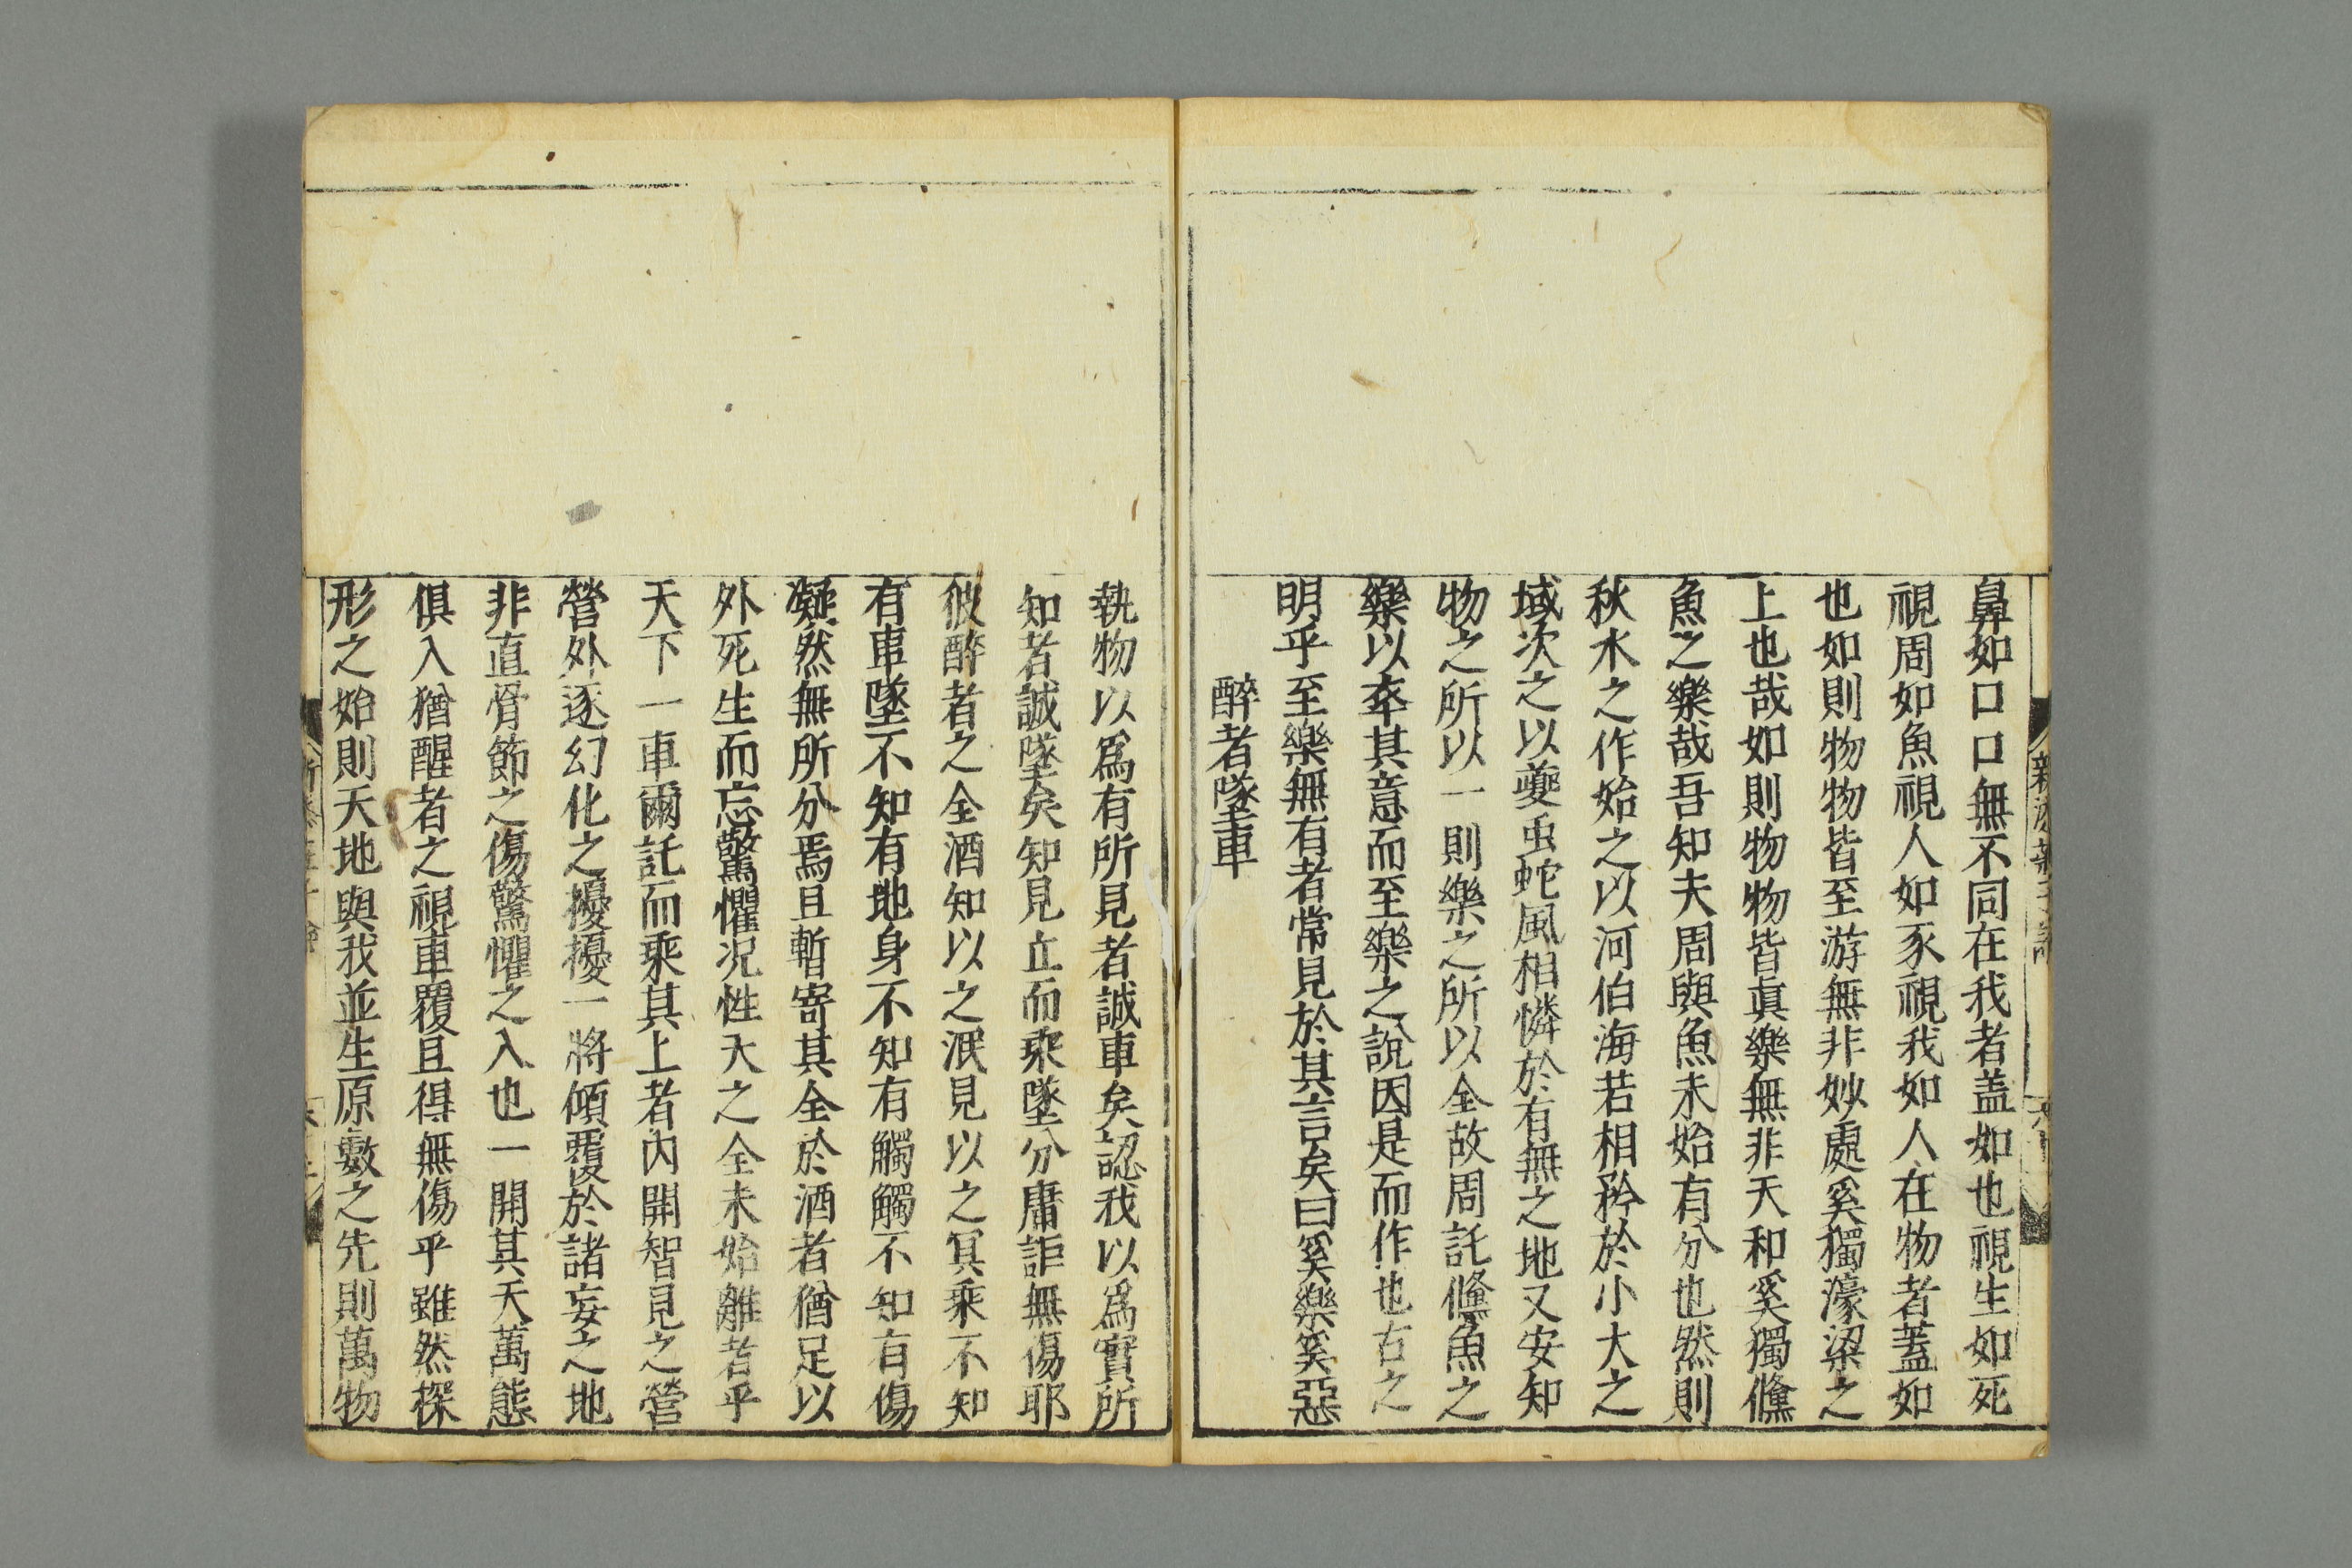 鼻如口口無不同在我者盖如也視生如死
視周如魚視人如豕視我如人在物者蓋如
也如則物物皆至游無非妙處奚獨濠梁之
上也哉如則物物皆眞樂無非天和奚獨鯈
魚之樂哉吾知夫周與魚未始有分也然則
秋水之作始之以河伯海若相矜於小大之
域次之以夔虫蛇風相憐於有無之地又安知
物之所以一則樂之所以全故周託鯈魚之
樂以卒其意而至樂之說因是而作也古之
明乎至樂無有者常見於其言矣曰奚樂奚惡
醉者墜車
執物以爲有所見者誠車矣認我以爲實所
知者誠墜矣知見立而乘墜分庸詎無傷耶
彼醉者之全酒知以之泯見以之冥乘不知
有車墜不知有地身不知有觸觸不知有傷
凝然無所分焉且暫寄其全於酒者猶足以
外死生而忘驚懼况性天之全未始離者乎
天下一車爾託而乘其上者內開智見之營
營外逐幻化之擾擾一將傾覆於諸妄之地
非直骨節之傷驚懼之入也一開其天萬態
俱入猶醒者之視車覆且得無傷乎雖然探
形之始則天地與我並生原數之先則萬物